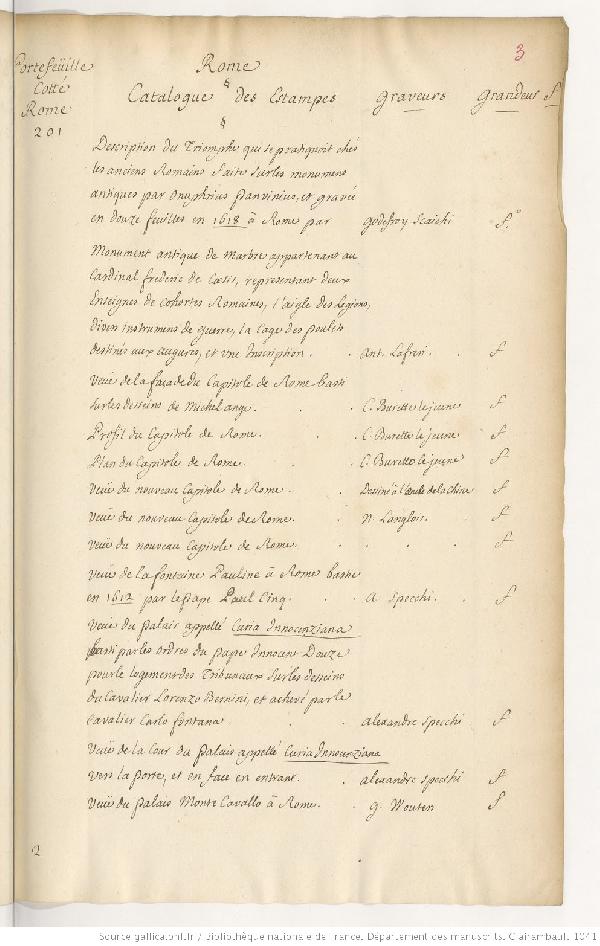 3
Portefeüille
Cotté
Rome
201
Rome
§
Catalogue des Estampes Graveurs Grandeur
§
Description du Triomphe qui se pratiquoit chés
les anciens Romains faite sur les monumens
antiques par Onuphrius Panvinius, et gravée
en douze feuilles en 1618 à Rome par Godefroy Scaichi f.°
Monument antique de Marbre appartenant au
Cardinal frederic de Cæsis, representant deux
Enseignes de Cohortes Romaines, l'aigle des Legions,
divers instrumens de guerre, la Cage des poulets
destinés aux augures, et vne Inscription. Ant. Lafreri. f
Veüe de la façade du Capitole de Rome basti
sur les desseins de Michel ange. C. Burette le jeune f
Profil du Capitole de Rome. C. Burette le jeune f
Plan du Capitole de Rome. C. Burette le jeune f
Veüe du nouveau Capitole de Rome. Dessiné à l'ancle de la Chine f
Veüe du nouveau Capitole de Rome. N. Langlois. f
Veüe du nouveau Capitole de Rome. f
Veüe de la fontaine Pauline à Rome bastie
en 1612 par le pape Paul Cinq. A. Specchi. f
Veüe du palais appellé Curia Innocenziana
basti par les ordres du pape Innocent Douze
pour le logement des Tribunaux sur les desseins
du Cavalier Lorenzo Bernini, et achevé par le
Cavalier Carlo fontana alexandre Specchi f
Veüe de la Cour du palais appellé Curia Innocenziana
vers la porte, et en face en entrant. alexandre Specchi f
Veüe du palais Monte Cavallo à Rome. G. Wouten f
2
Source gallica.bnf.fr / Bibliothèque nationale de France. Département des manuscrits. Clairambault 1041